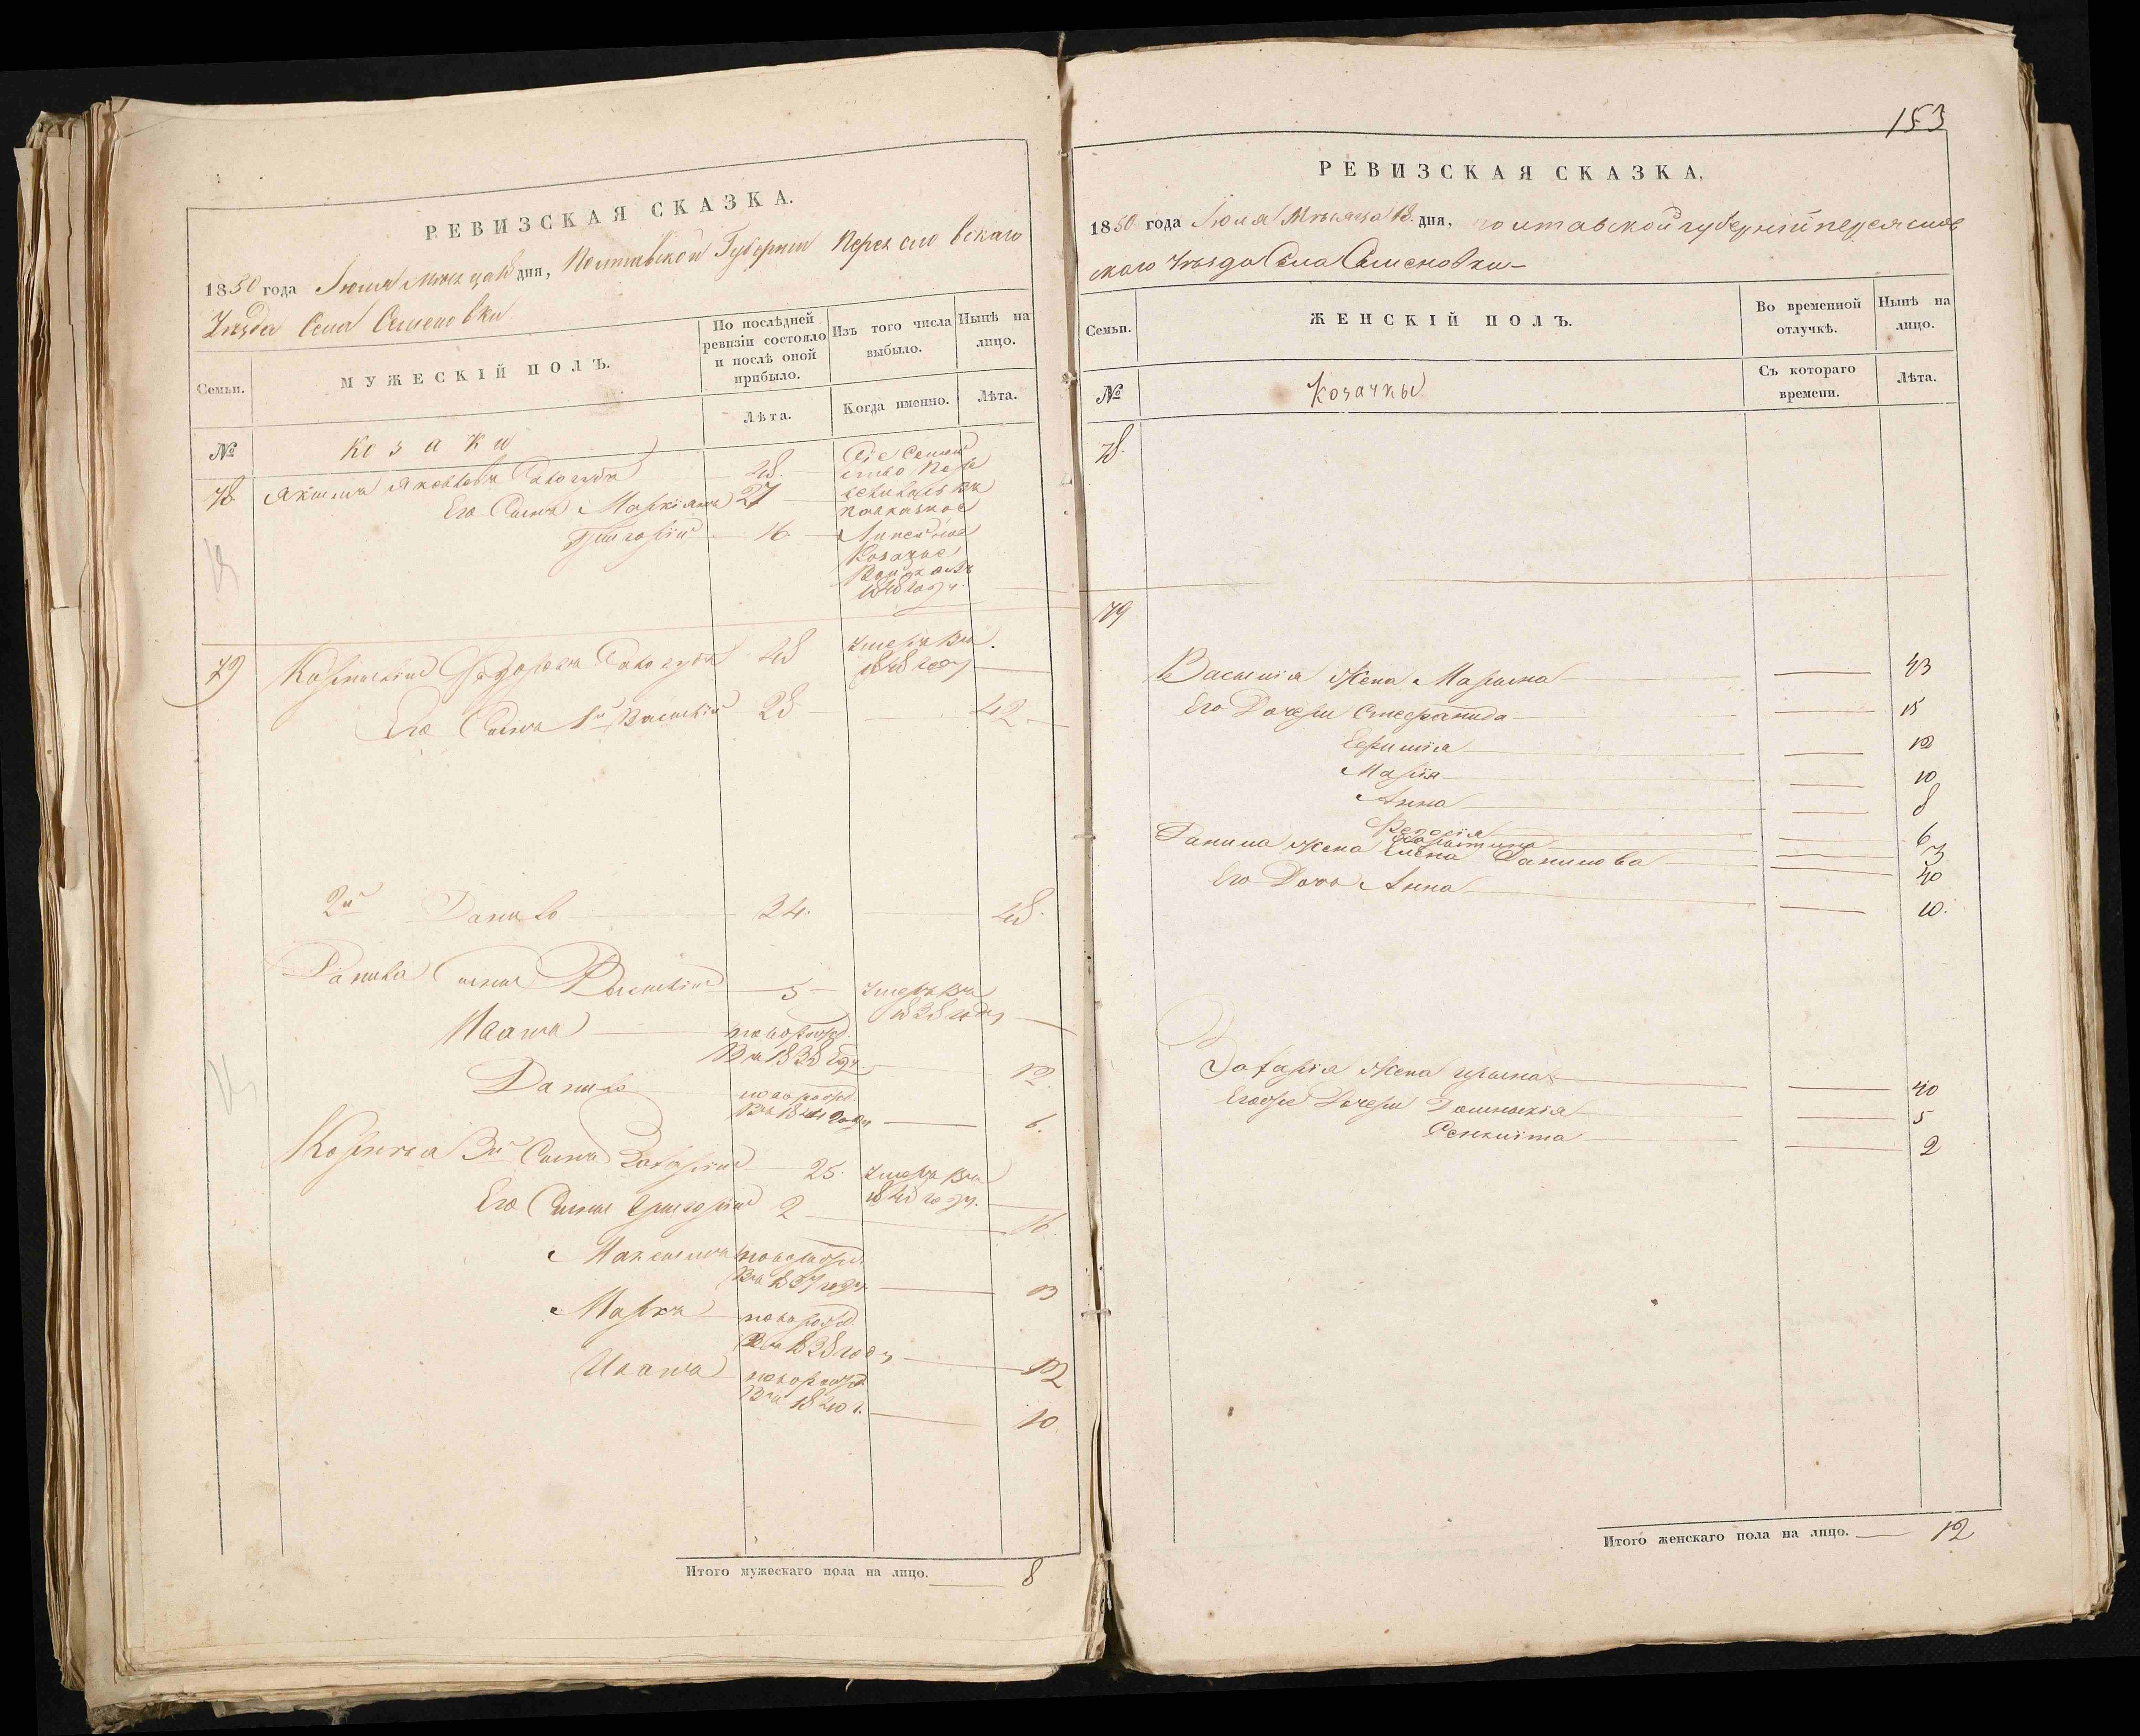 РЕВИЗСКАЯ СКАЗКА.
1850 года Июля Месяца 18 дня, Полтавской Губернии Переяславскаго
Уезда Села Семеновки
Семьи.
МУЖЕСКІЙ ПОЛЪ.
По послѣдней ревизіи состояло и послѣ оной прибыло.
Изъ того числа выбыло.
Нынѣ на лицо.
Лѣта.
Когда именно.
Лѣта.
№
Козаки
78 Яковлевъ 48. Сіе Семей
Его Сынъ Маркіянъ 27 ство Пере
Григорій 16
Козачье
79 Федоровъ 48 Умеръ въ
1848 году
Его Сынъ 1й Василій 28 42
2й Данило 24. 48.
Данила Сынъ Василій 5 Умеръ въ
1838 году
Иванъ новорожд.
въ 1838 году 12
Данило новорожд.
въ 1844 году 6.
3й Сынъ Захарій 25. Умеръ въ
184 году.
Его Сынъ Григорій 2 16.
Максимъ новорожд.
въ 1837 году 13
Марко новорожд.
въ 1838 году 12
Иванъ новорожд.
въ 1840 г. 10
Итого мужескаго пола на лицо. 8
153
РЕВИЗСКАЯ СКАЗКА.
1850 года Июля Месяца 18. дня, полтавской губерній переяслов
скаго уезда Села Семеновки
Семьи.
ЖЕНСКІЙ ПОЛЪ.
Во временной отлучкѣ.
Нынѣ на лицо.
№
Козачкы
Съ котораго времени.
Лѣта.
78.
79
Василія Жена Марына 43
Его Дочери Стефанида 15
Ефимія 12
Марія 10
Анна 8
Феодосія 6
3
Данила Жена Елена Данилова 40
Его Дочь Анна 10.
Захарія Жена Ирына 40
Егоже Дочери Домникія 5
2
Итого женскаго пола на лицо. 12